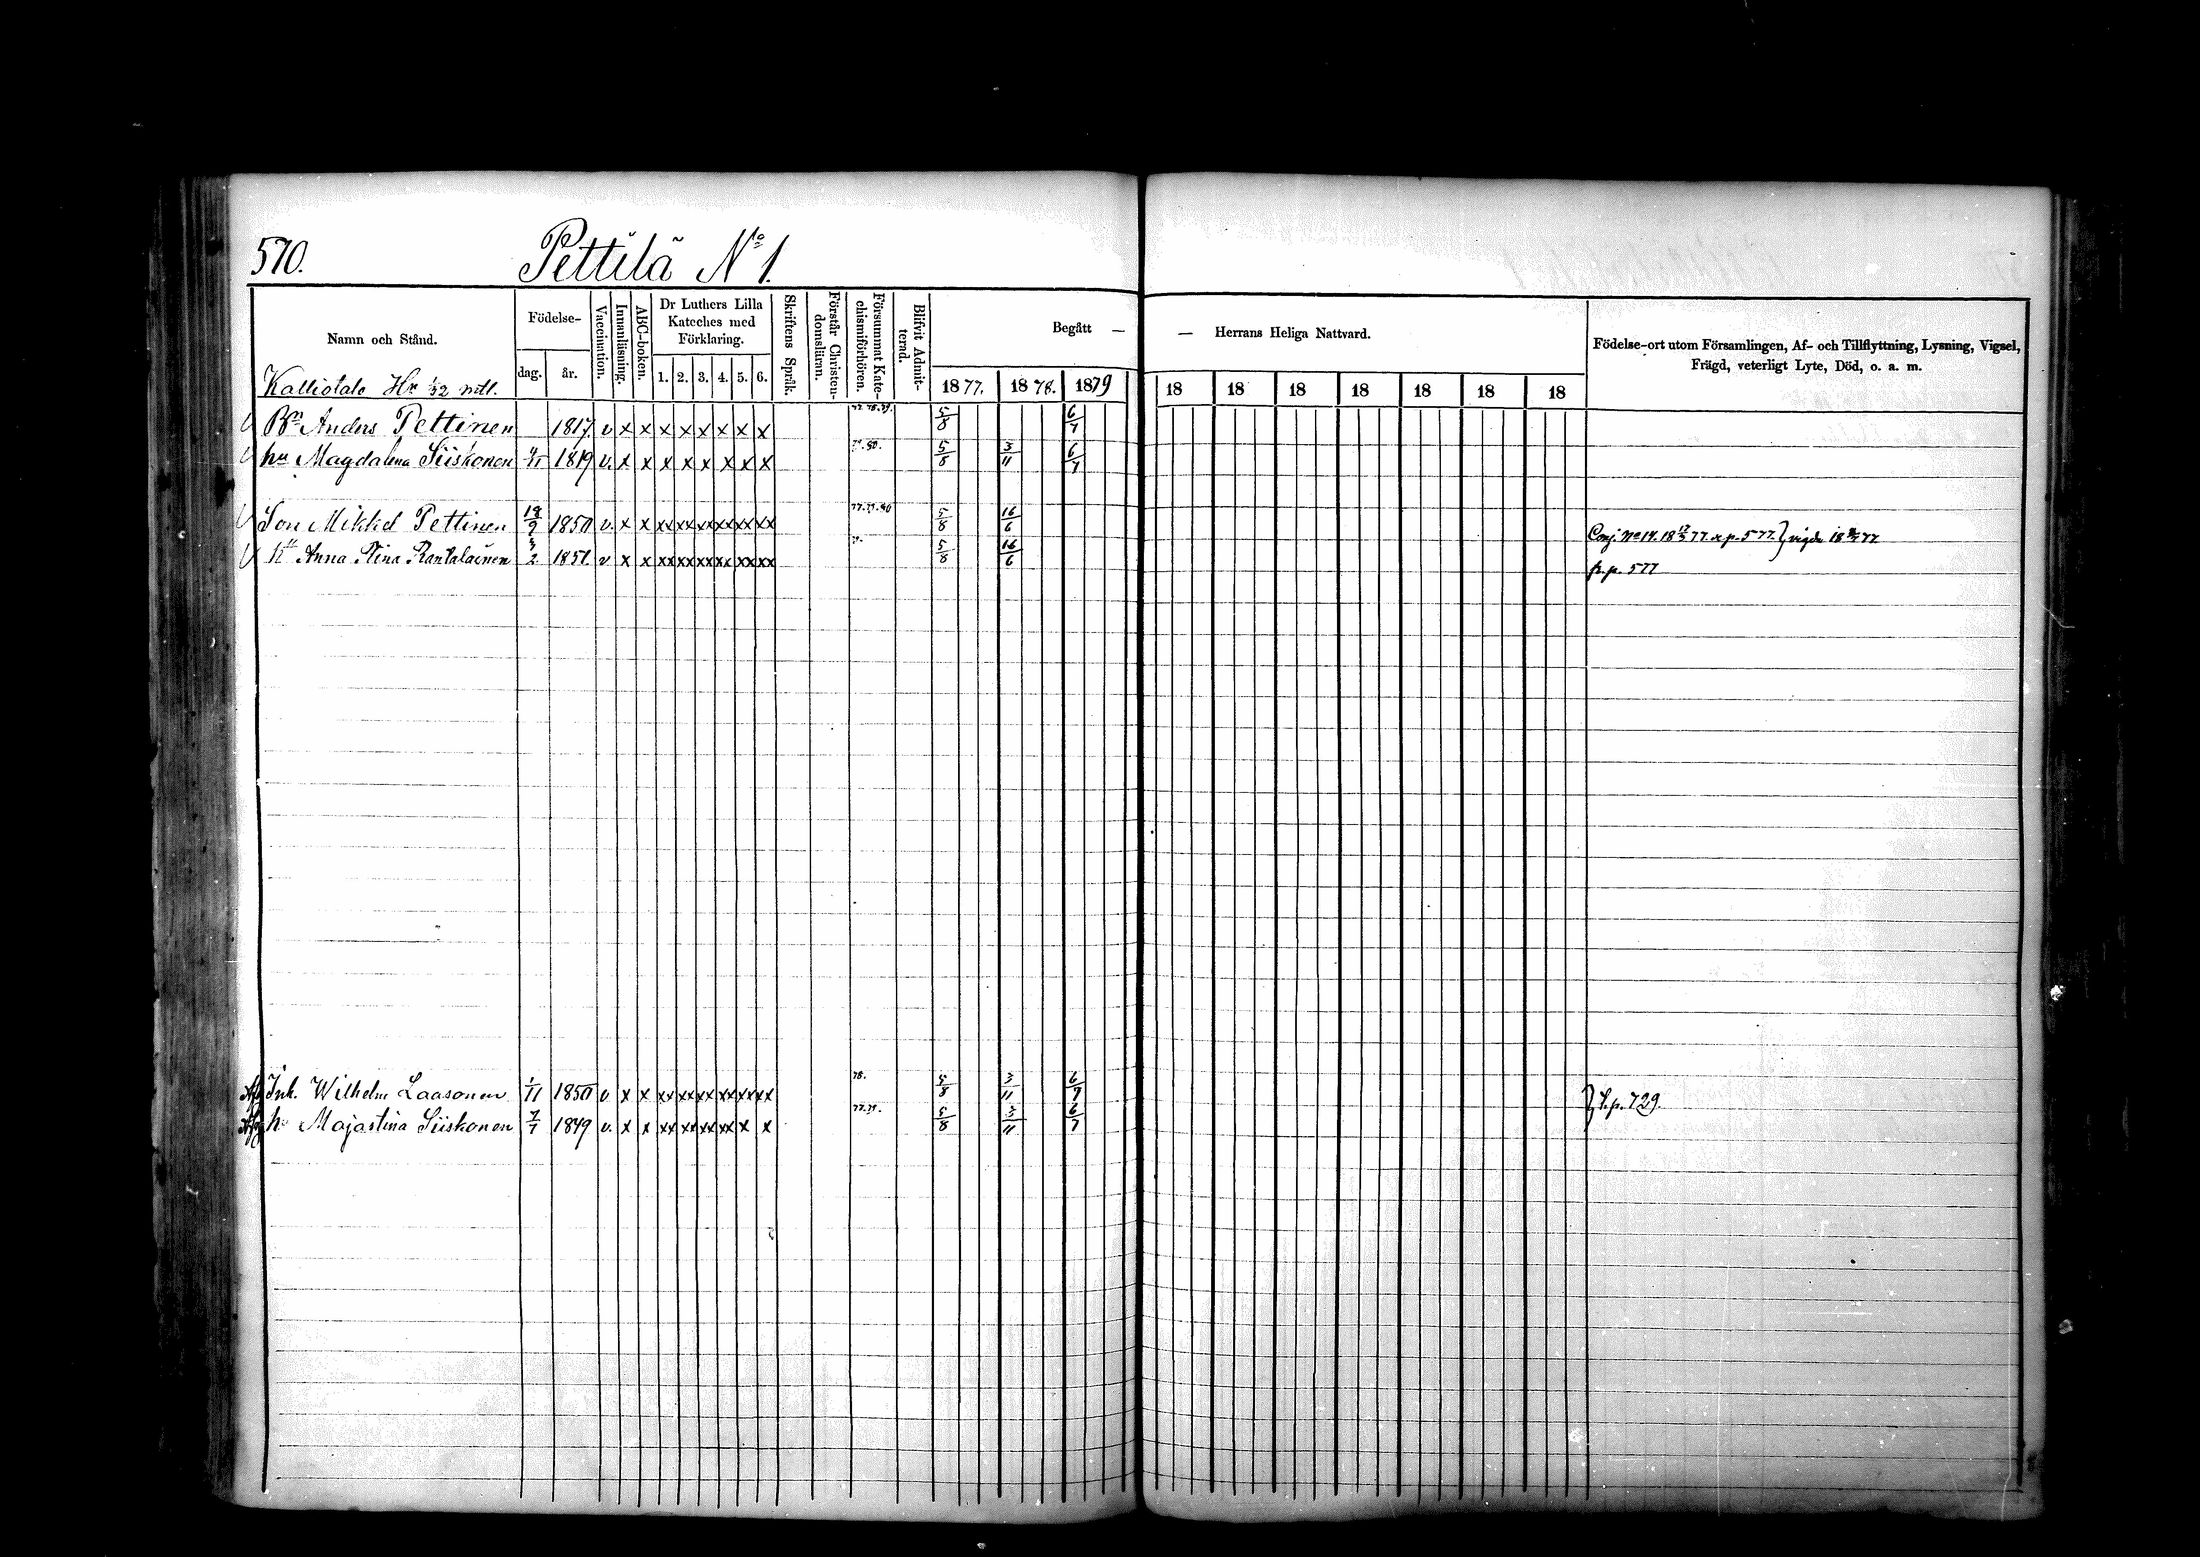 570. Pettilä No 1.
Namn och Stånd.
Födelse-
dag. år.
Vaccination.
Innanläsning.
ABC-boken.
Dr Luthers Lilla
Kateches med
Förklaring.
1. 2. 3. 4. 5. 6.
Skriftens Språk.
Förstår Christen-
domsläran.
Försummat Kate-
chismiförhören.
Blifvit Admit-
terad.
Begått —
— Herrans Heliga Nattvard.
1877. 1878. 1879 18 18 18 18 18 18 18
Födelse-ort utom Församlingen, Af- och Tillflyttning, Lysning, Vigsel,
Frägd, veterligt Lyte, Död, o. a. m.
Kalliotalo Hn 1/32 mtl.
Bn Anders Pettinen 1817. v x x x x x x x x 5/8 6/7
hu Magdalena Siiskonen 1819 v. x x x x x x x x 5/8 3/11 6/7
Son Mikkel Pettinen 18/9 1850 v. x x xx xx xx xx xx xx 5/8 16/6
hu Anna Stina Rantalainen 3/2 1851. v x x xx xx xx xx xx xx 5/8 16/6
p. 577
Ink. Wilhelm Laasonen 1/11 1850 v x x xx xx xx xx xx xx 78. 5/8 3/11 6/7
hu Majastina Siiskonen 7/7 1849 v. x x xx xx xx xx x x 5/8 3/11 6/7
p. 729.